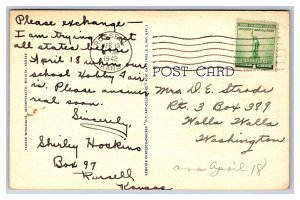 Please exchange—
I am trying to get
all states before
April 18 when our
school Hobby Fair
is. Please answer
real soon.
Sincerely,
Shirley Hoskins
Box 97
Russell
Kansas
1942
POST CARD
Mrs D. E. Strode
Rt. 3 Box 389
Walla Walla
Washington
ans April 18